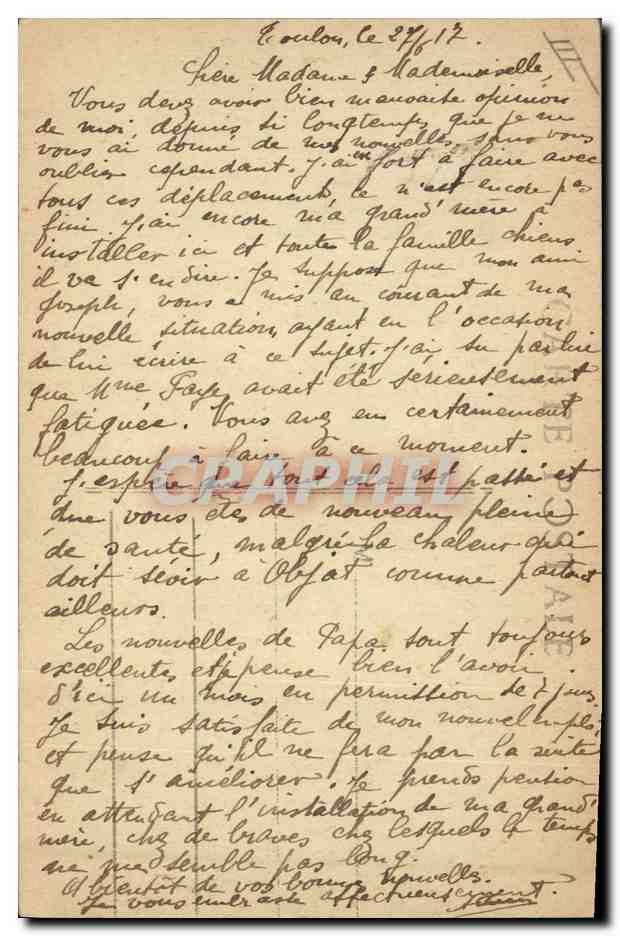 Toulon, le 27/6 17.
III
Chère Madame & Mademoiselle,
Vous devez avoir bien mauvaise opinion
de moi, depuis si longtemps que je ne
vous ai donné de mes nouvelles, sans vous
oublier cependant. J'ai eu fort à faire avec
tous ces déplacements, ce n'est encore pas
fini. J'ai encore ma grand'mère à
installer ici et toute la famille chiens
il va s'en dire. Je suppose que mon ami
Joseph, vous a mis au courant de ma
nouvelle situation, ayant eu l'occasion
de lui écrire à ce sujet. J'ai su par lui
que Mme Faye, avait été sérieusement
fatiguée. Vous avez eu certainement
beaucoup à faire à ce moment.
J'espère que tout cela est passé et
que vous êtes de nouveau pleine
de santé, malgré la chaleur qui
doit sévir à Objat comme partout
ailleurs.
Les nouvelles de Papa sont toujours
excellentes et je pense bien l'avoir
d'ici un mois en permission de 7 jours.
Je suis satisfaite de mon nouvel emploi
et pense qu'il ne fera par la suite
que s'améliorer. Je prends pension
en attendant l'installation de ma grand'
mère, chez de braves chez lesquels le temps
ne me semble pas long.
A bientôt de vos bonnes nouvelles.
Je vous embrasse affectueusement.
CARTE POSTALE
CPAPHIL